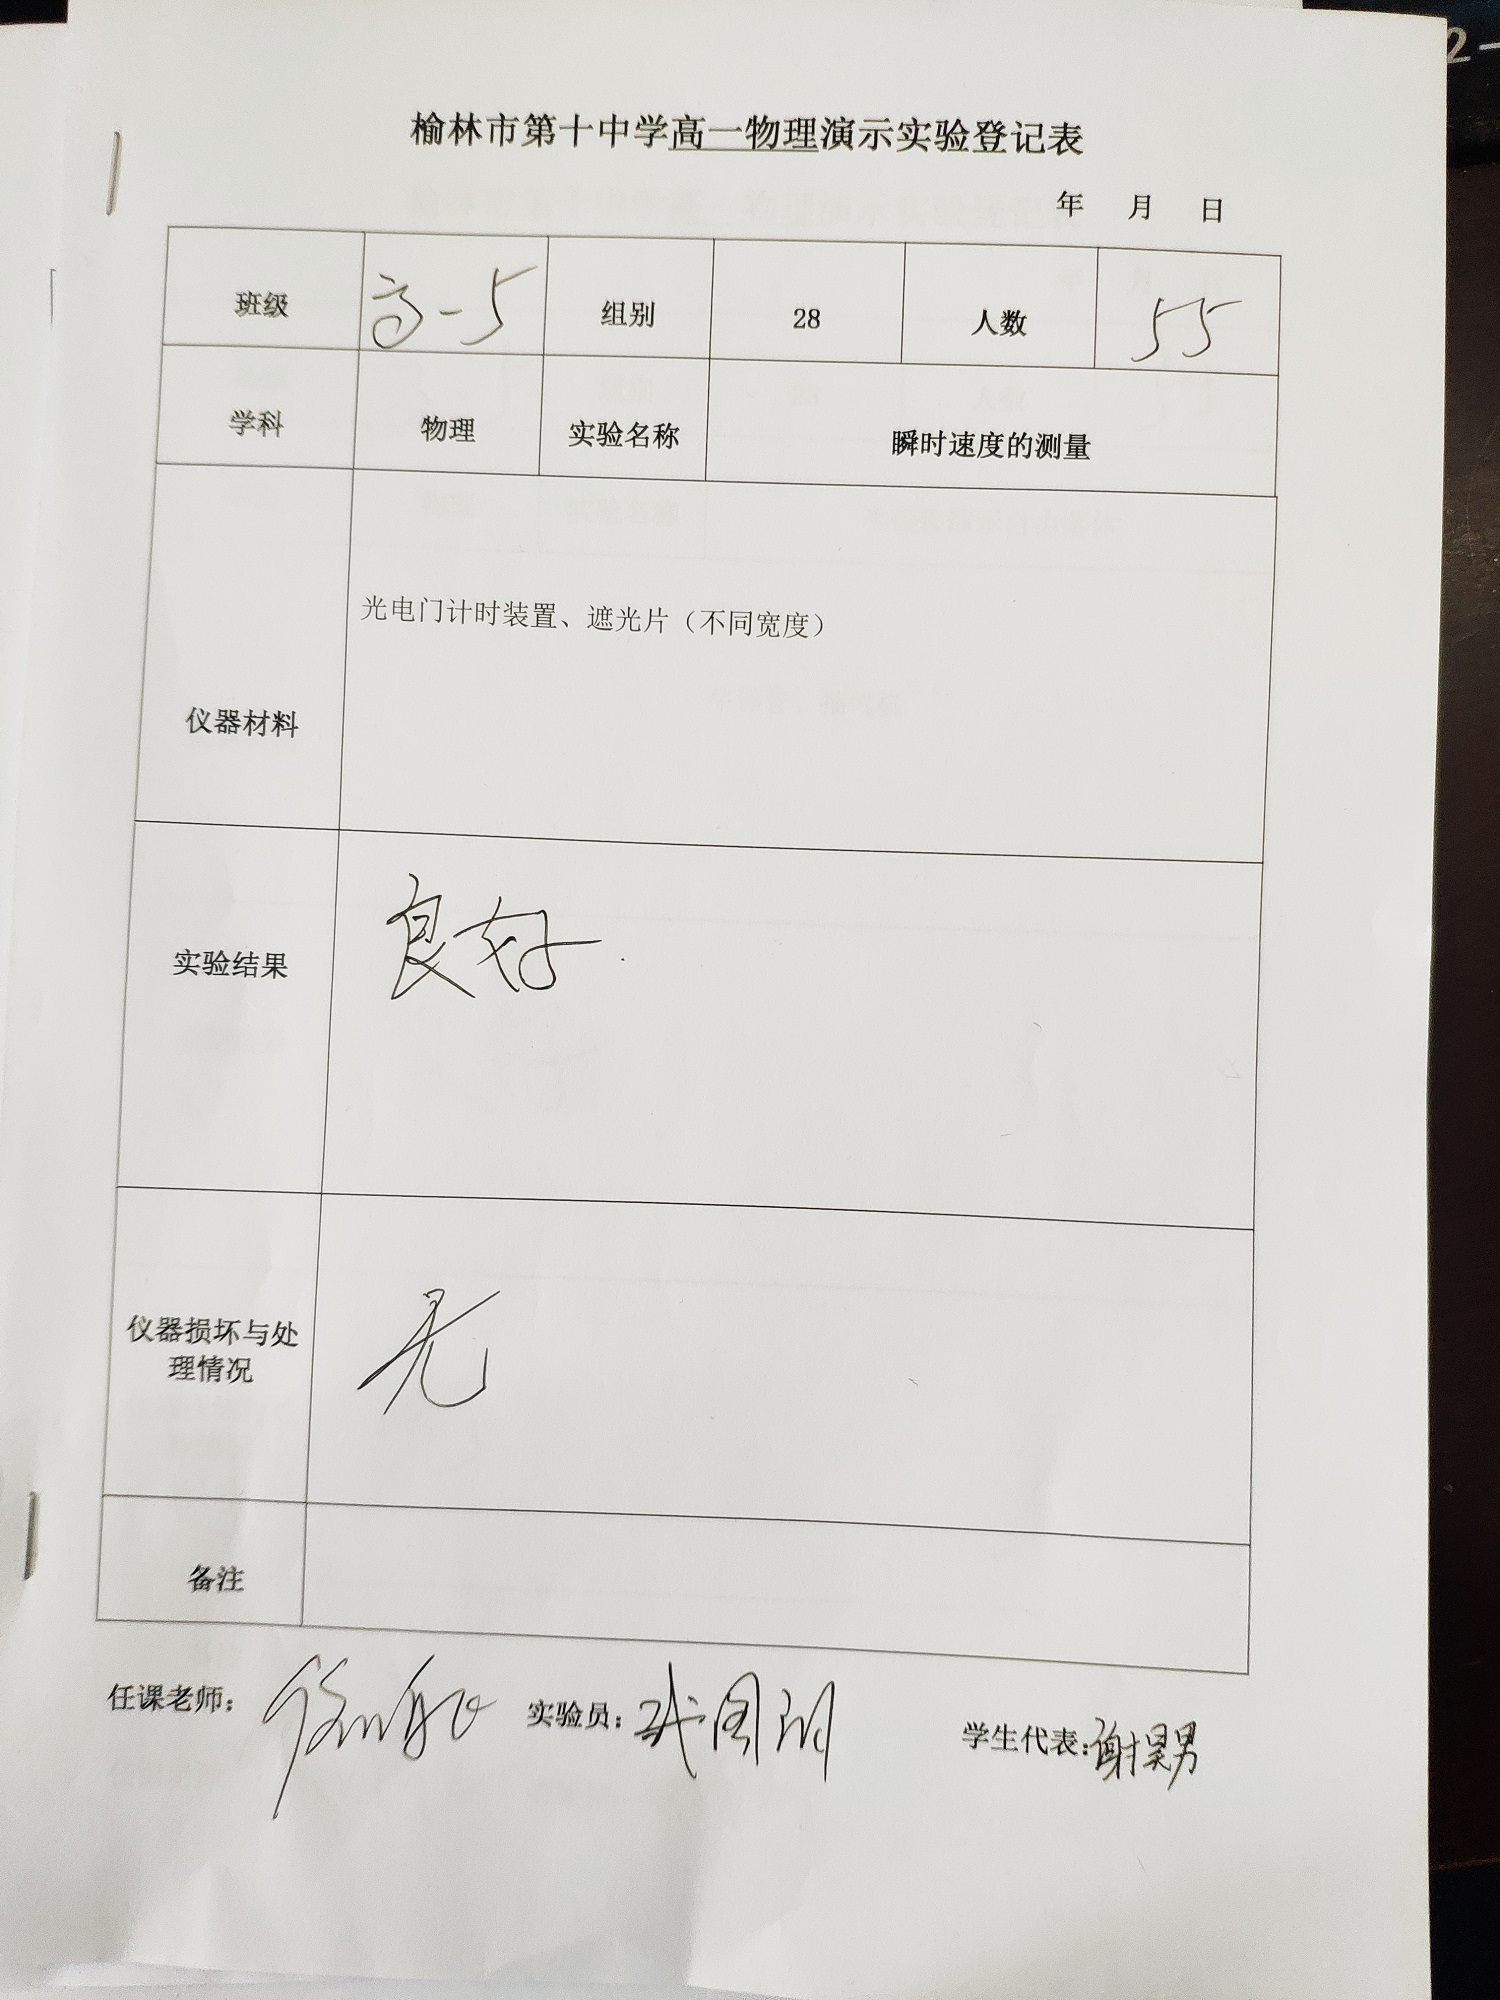 榆林市第十中学高一物理演示实验登记表
年 月 日
班级 高一5 组别 28 人数 55
学科 物理 实验名称 瞬时速度的测量
光电门计时装置、遮光片（不同宽度）
仪器材料
良好.
实验结果
无
仪器损坏与处
理情况
备注
任课老师： 实验员： 学生代表：谢昊男